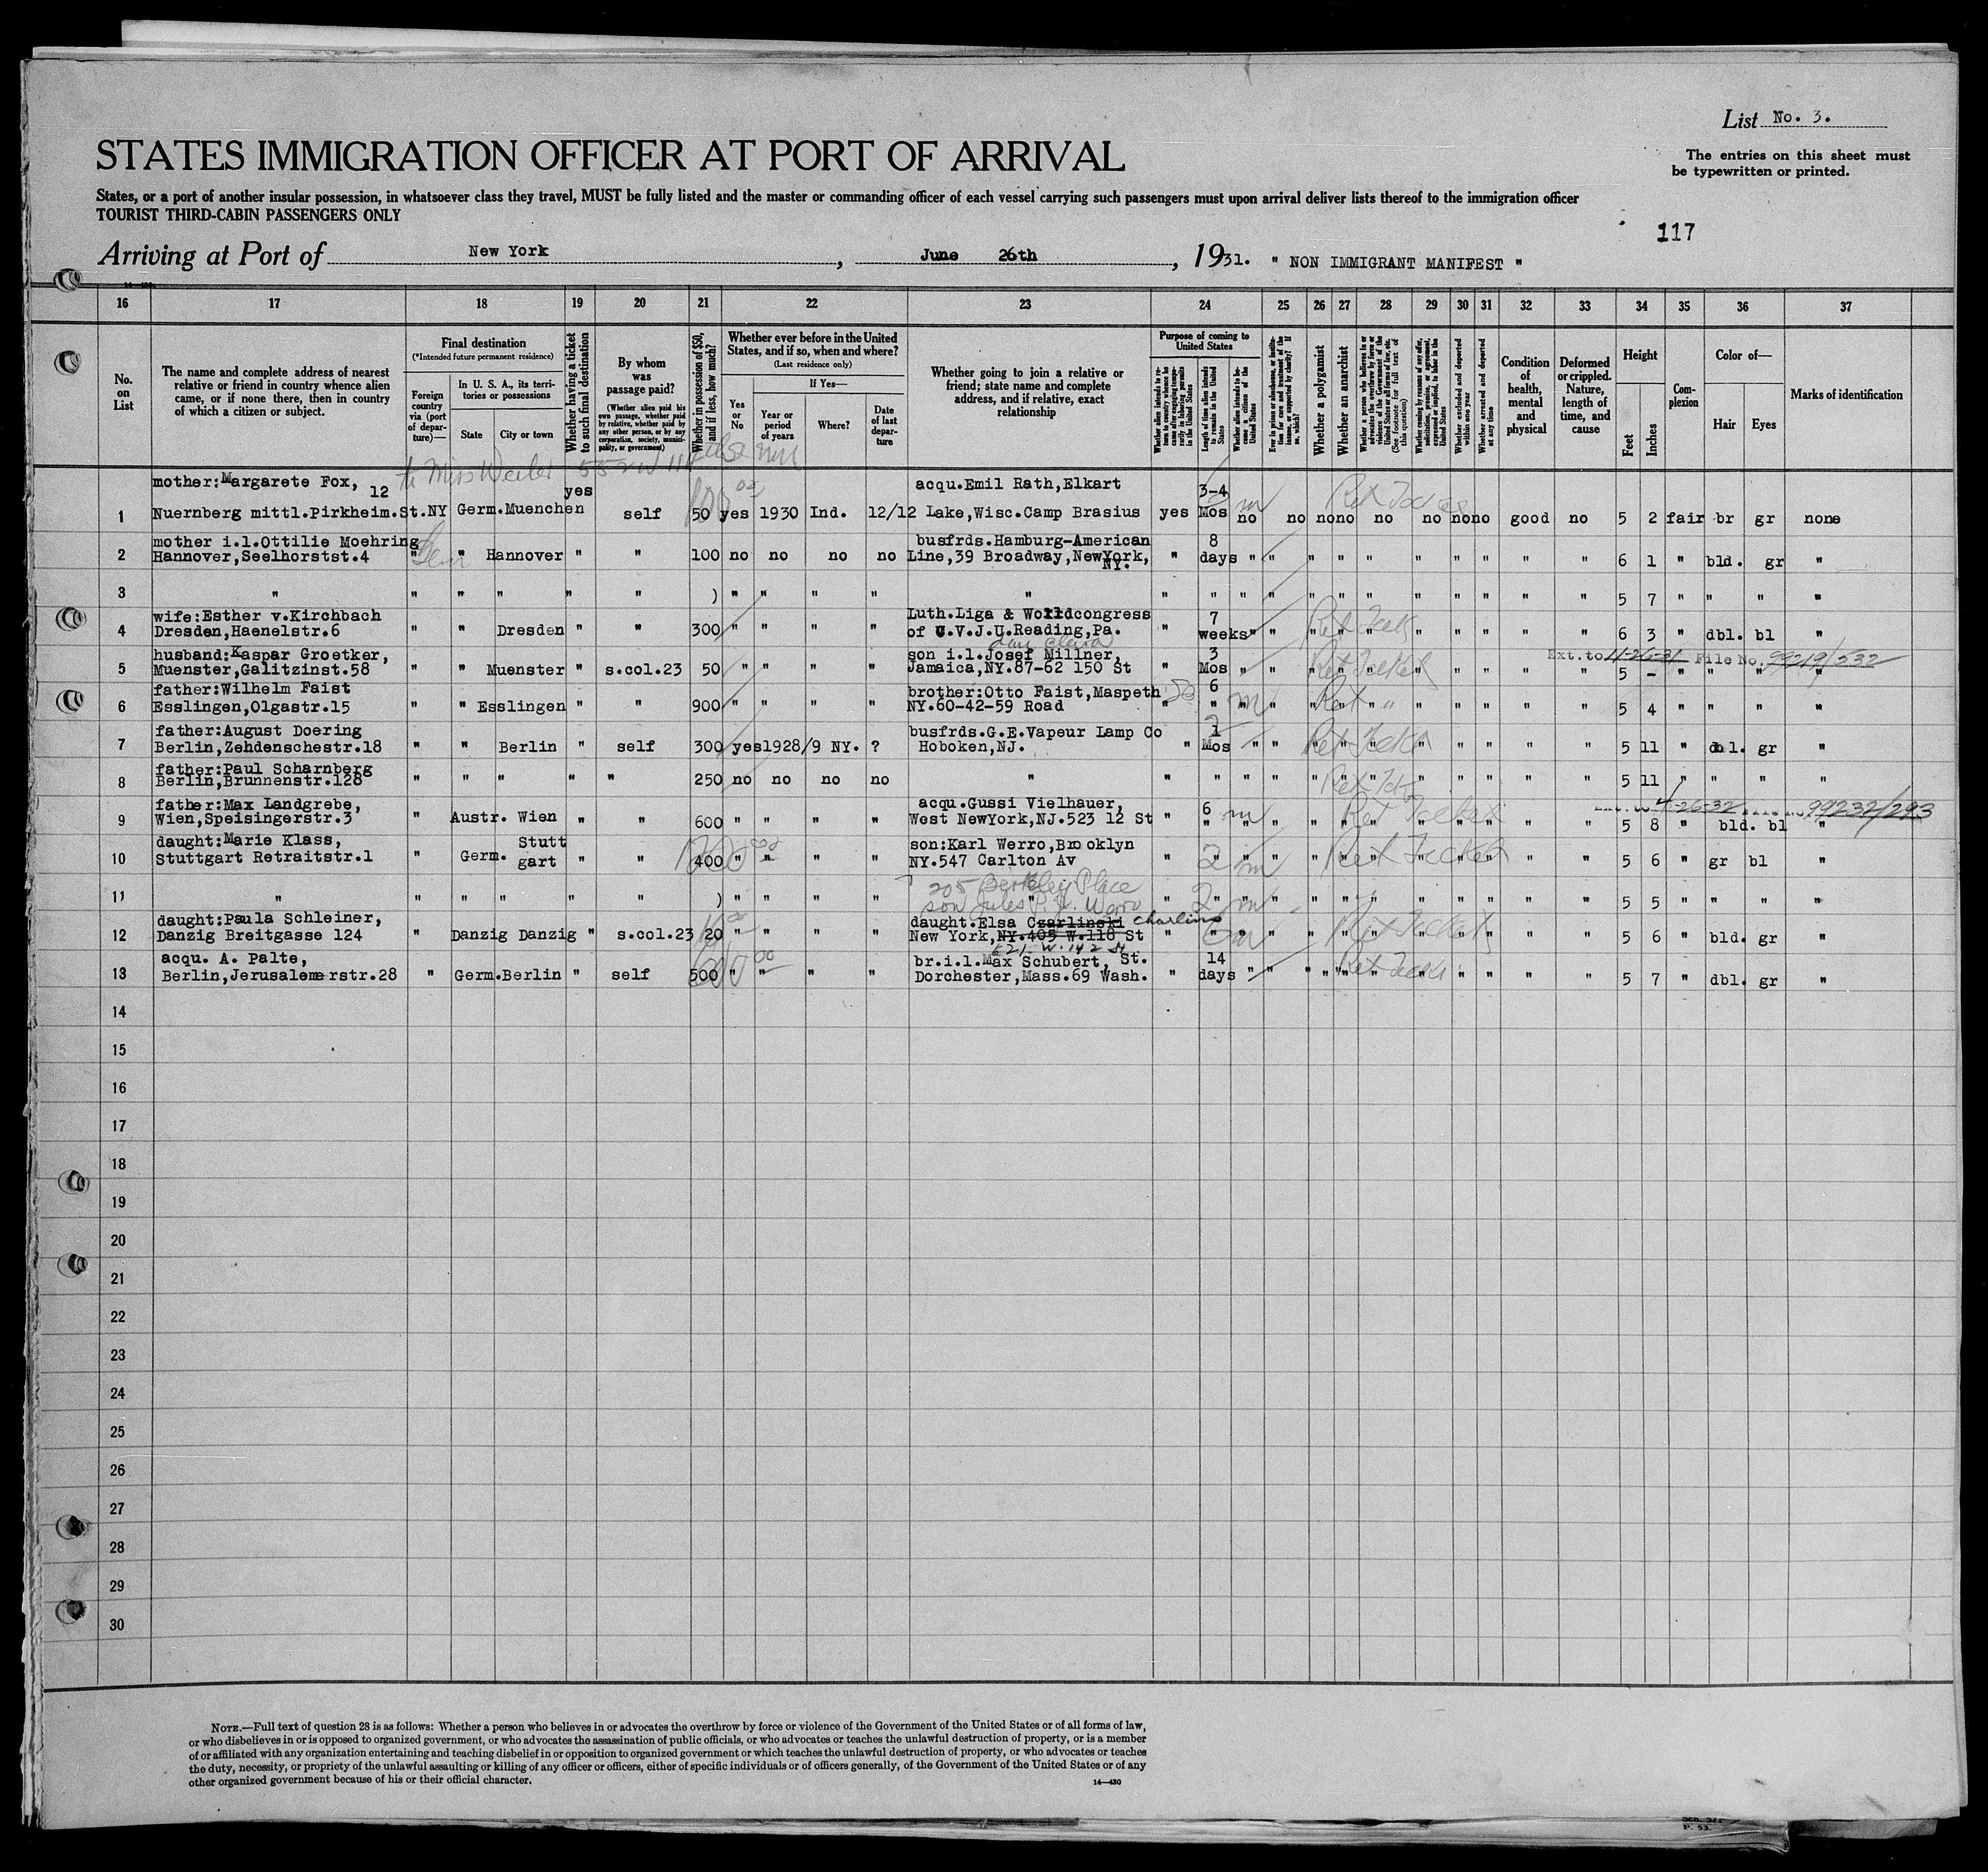 List No. 3.
STATES IMMIGRATION OFFICER AT PORT OF ARRIVAL
The entries on this sheet must
be typewritten or printed.
States, or a port of another insular possession, in whatsoever class they travel, MUST be fully listed and the master or commanding officer of each vessel carrying such passengers must upon arrival deliver lists thereof to the immigration officer
TOURIST THIRD-CABIN PASSENGERS ONLY
117
Arriving at Port of New York, June 26th, 1931. " NON IMMIGRANT MANIFEST "
16 17 18 19 20 21 22 23 24 25 26 27 28 29 30 31 32 33 34 35 36 37
No.
on
List
The name and complete address of nearest
relative or friend in country whence alien
came, or if none there, then in country
of which a citizen or subject.
Final destination
(*Intended future permanent residence)
Foreign
country
via (port
of depar-
ture)—
In U. S. A., its terri-
tories or possessions
State
City or town
Whether having a ticket
to such final destination
By whom
was
passage paid?
(Whether alien paid his
own passage, whether paid
by relative, whether paid by
any other person, or by any
corporation, society, munici-
pality, or government)
Whether in possession of $50,
and if less, how much?
Whether ever before in the United
States, and if so, when and where?
(Last residence only)
Yes
or
No
If Yes—
Year or
period
of years
Where?
Date
of last
depar-
ture
Whether going to join a relative or
friend; state name and complete
address, and if relative, exact
relationship
Purpose of coming to
United States
Length of time alien intends
to remain in the United
States
Whether alien intends to be-
come a citizen of the
United States
Whether a polygamist
Whether an anarchist
(See footnote for full text of
this question)
Whether excluded and deported
within one year
Whether arrested and deported
at any time
Condition
of
health,
mental
and
physical
Deformed
or crippled.
Nature,
length of
time, and
cause
Height
Feet
Inches
Com-
plexion
Color of—
Hair
Eyes
Marks of identification
mother:Margarete Fox, 12 yes acqu.Emil Rath,Elkart 3-4
1 Nuernberg mittl.Pirkheim.St.NY Germ.Muenchen self 50 yes 1930 Ind. 12/12 Lake,Wisc.Camp Brasius yes Mos no no no no no no no no good no 5 2 fair br gr none
mother i.l.Ottilie Moehring busfrds.Hamburg-American 8
2 Hannover,Seelhorstst.4 " " Hannover " " 100 no no no no Line,39 Broadway,NewYork, " days " " " " " " " " " " 6 1 " bld. gr "
NY.
3 " " " " " " ) " " " " " " " " " " " " " " " " " 5 7 " " " "
wife:Esther v.Kirchbach Luth.Liga & Worldcongress 7
4 Dresden,Haenelstr.6 " " Dresden " " 300 " " " " of C.V.J.U.Reading,Pa. " weeks " " " " " " " " " " 6 3 " dbl. bl "
husband:Kaspar Groetker, son i.l.Josef Millner, 3 Ext.to 11-26-31 File No. 99219/532
5 Muenster,Galitzinst.58 " " Muenster " s.col.23 50 " " " " Jamaica,NY.87-62 150 St " Mos " " " " " " " " " " 5 - " " " "
father:Wilhelm Faist brother:Otto Faist,Maspeth 6
6 Esslingen,Olgastr.15 " " Esslingen " " 900 " " " " NY.60-42-59 Road " " " " " " " " " " " " 5 4 " " " "
father:August Doering busfrds.G.E.Vapeur Lamp Co 1
7 Berlin,Zehdenschestr.18 " " Berlin " self 300 yes1928/9 NY. ? Hoboken,NJ. " Mos " " " " " " " " " " 5 11 " dbl. gr "
father:Paul Scharnberg
8 Berlin,Brunnenstr.128 " " " " " 250 no no no no " " " " " " " " " " " " " 5 11 " " " "
father:Max Landgrebe, acqu.Gussi Vielhauer, 6 Ext. to 4-26-32 File No. 99232/293
9 Wien,Speisingerstr.3 " Austr. Wien " " 600 " " " " West NewYork,NJ.523 12 St " " " " " " " " " " " " 5 8 " bld. bl "
daught:Marie Klass, Stutt son:Karl Werro,Brooklyn
10 Stuttgart Retraitstr.1 " Germ. gart " " 400 " " " " NY.547 Carlton Av " " " " " " " " " " " " 5 6 " gr bl "
205 Berkeley Place
11 " " " " " " ) " " " " " " " " " " " " " " " " " 5 5 " " " "
son Jules P. H. Werro
daught:Paula Schleiner, daught.Elsa Czarlinski Charlins
12 Danzig Breitgasse 124 " Danzig Danzig " s.col.23 20 " " " " New York,NY.405 W.118 St " " " " " " " " " " " " 5 6 " bld. gr "
621 W. 142 St
acqu. A. Palte, br.i.l.Max Schubert, St. 14
13 Berlin,Jerusalemerstr.28 " Germ.Berlin " self 500 " " " " Dorchester,Mass.69 Wash. " days " " " " " " " " " " 5 7 " dbl. gr "
14
15
16
17
18
19
20
21
22
23
24
25
26
27
28
29
30
NOTE.—Full text of question 28 is as follows: Whether a person who believes in or advocates the overthrow by force or violence of the Government of the United States or of all forms of law,
or who disbelieves in or is opposed to organized government, or who advocates the assassination of public officials, or who advocates or teaches the unlawful destruction of property, or is a member
of or affiliated with any organization entertaining and teaching disbelief in or opposition to organized government or which teaches the unlawful destruction of property, or who advocates or teaches
the duty, necessity, or propriety of the unlawful assaulting or killing of any officer or officers, either of specific individuals or of officers generally, of the Government of the United States or of any
other organized government because of his or their official character.
14—430